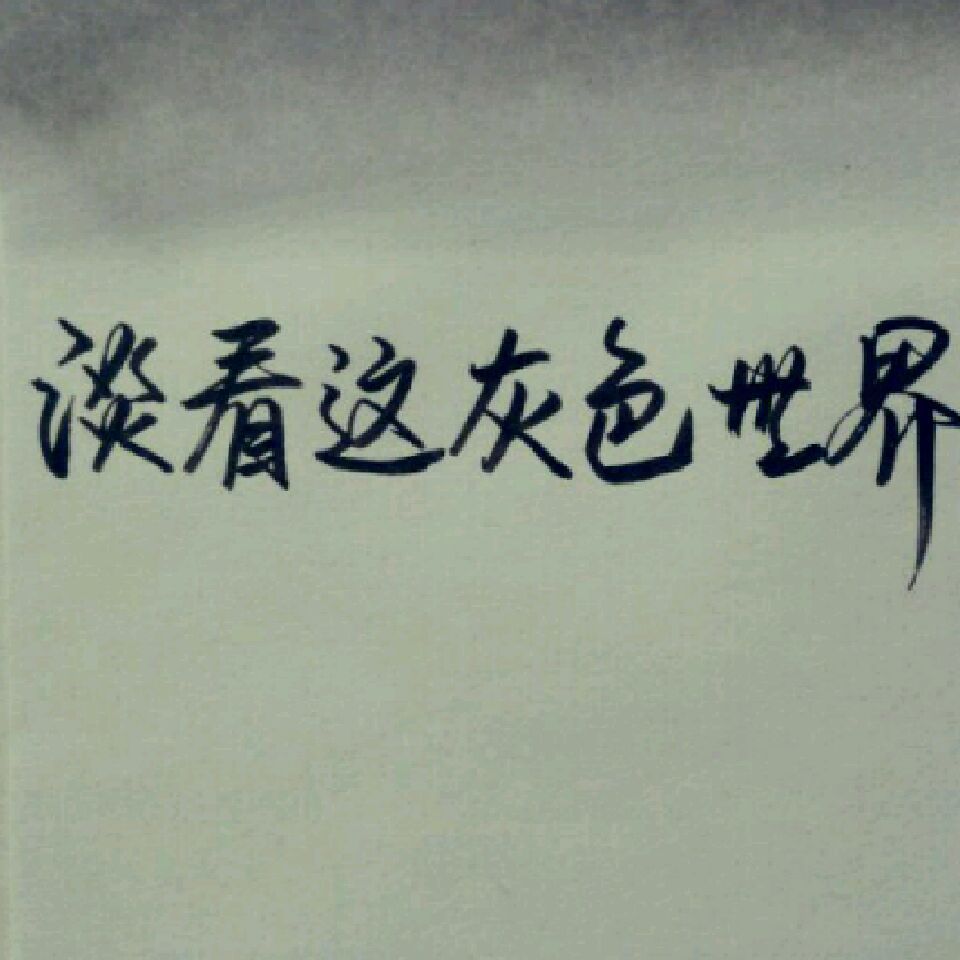 淡看这灰色世界